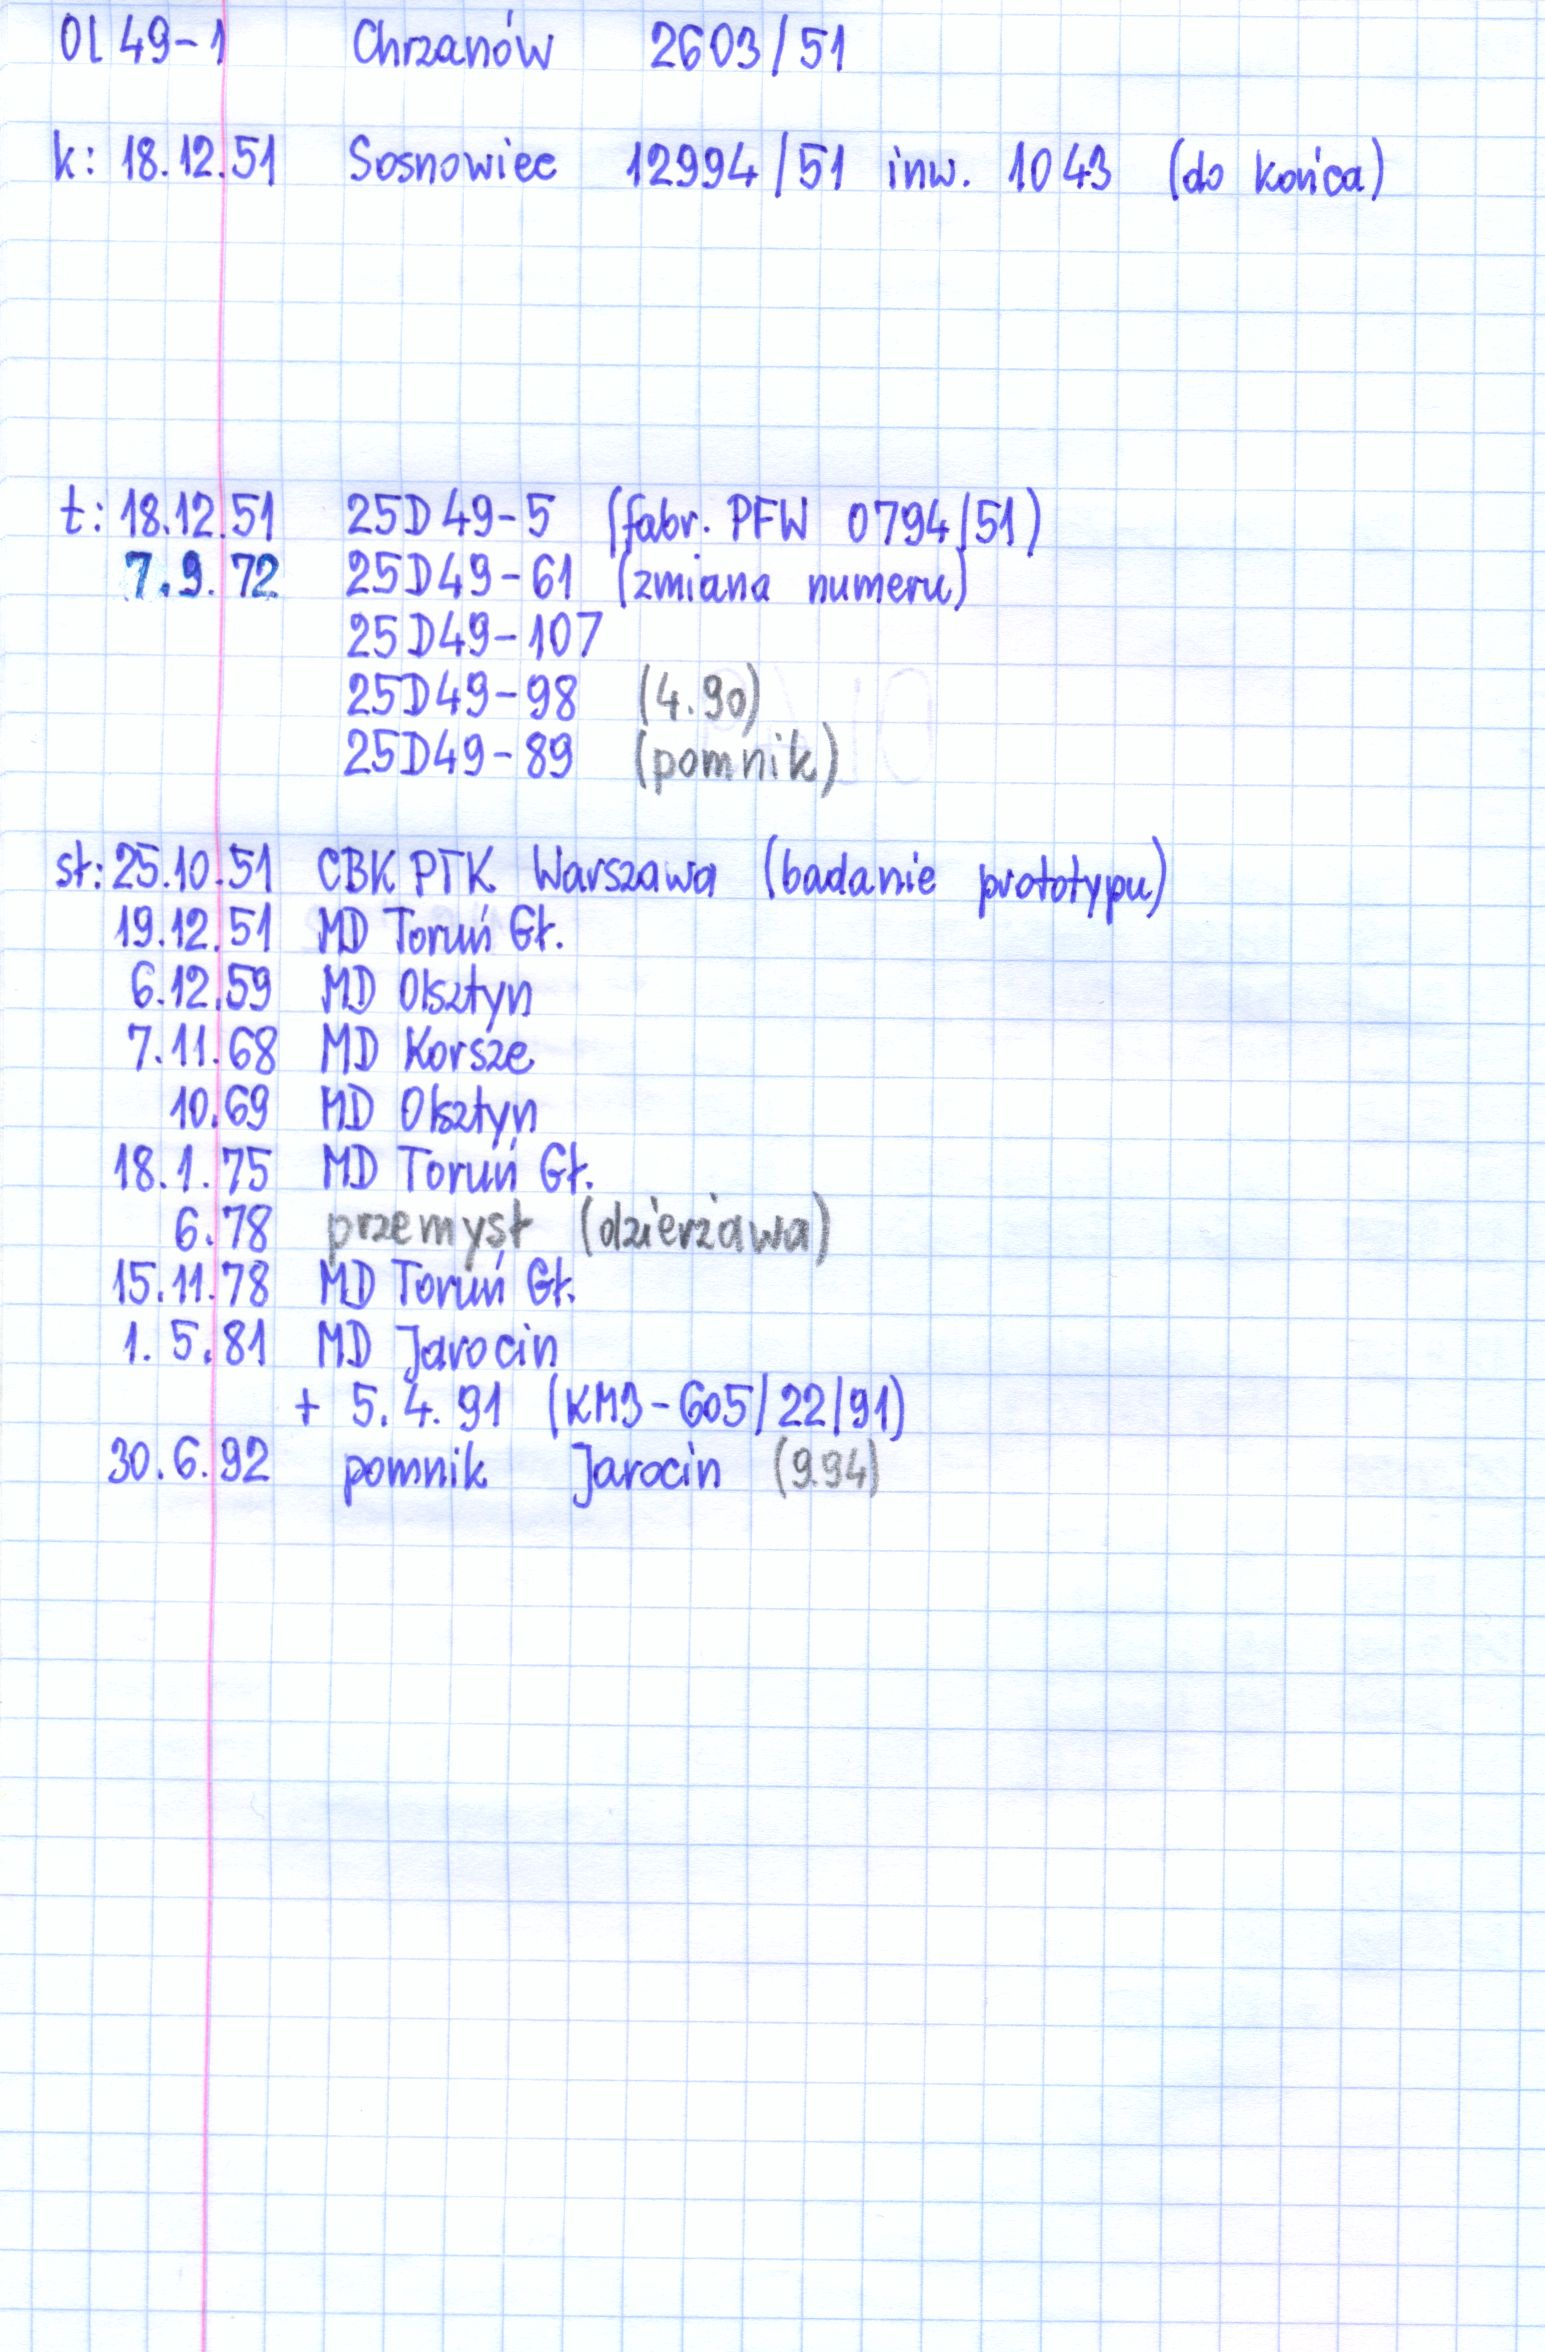 Ol 49-1 Chrzanów 2603/51
k: 18.12.51 Sosnowiec 12994/51 inw. 1043 (do końca)
t: 18.12.51 25D49-5 (fabr. PFW 0794/51)
7.9.72 25D49-61 (zmiana numeru)
25D49-107
25D49-98 (4.90)
25D49-89 (pomnik)
st: 25.10.51 CBK PTK Warszawa (badanie prototypu)
19.12.51 MD Toruń Gł.
6.12.59 MD Olsztyn
7.11.68 MD Korsze
10.69 MD Olsztyn
18.1.75 MD Toruń Gł.
6.78 przemysł (dzierżawa)
15.11.78 MD Toruń Gł.
1.5.81 MD Jarocin
+ 5.4.91 (KM3-605/22/91)
30.6.92 pomnik Jarocin (9.94)